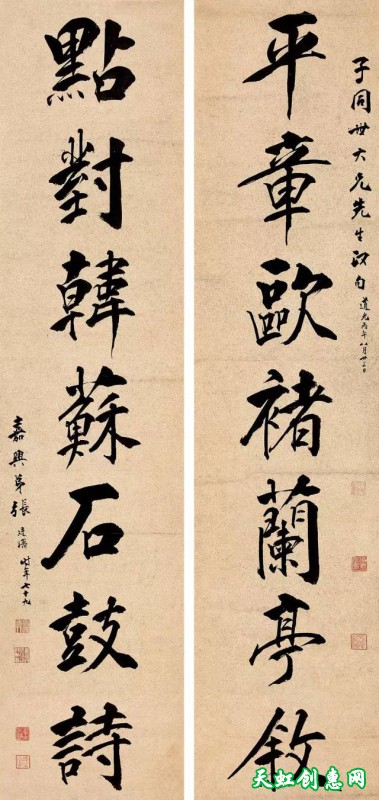 子同世大兄先生 道光丙午八月
平章歐褚蘭亭敘
點對韓蘇石鼓詩
嘉興弟張廷濟時年七十九
天虹创意网